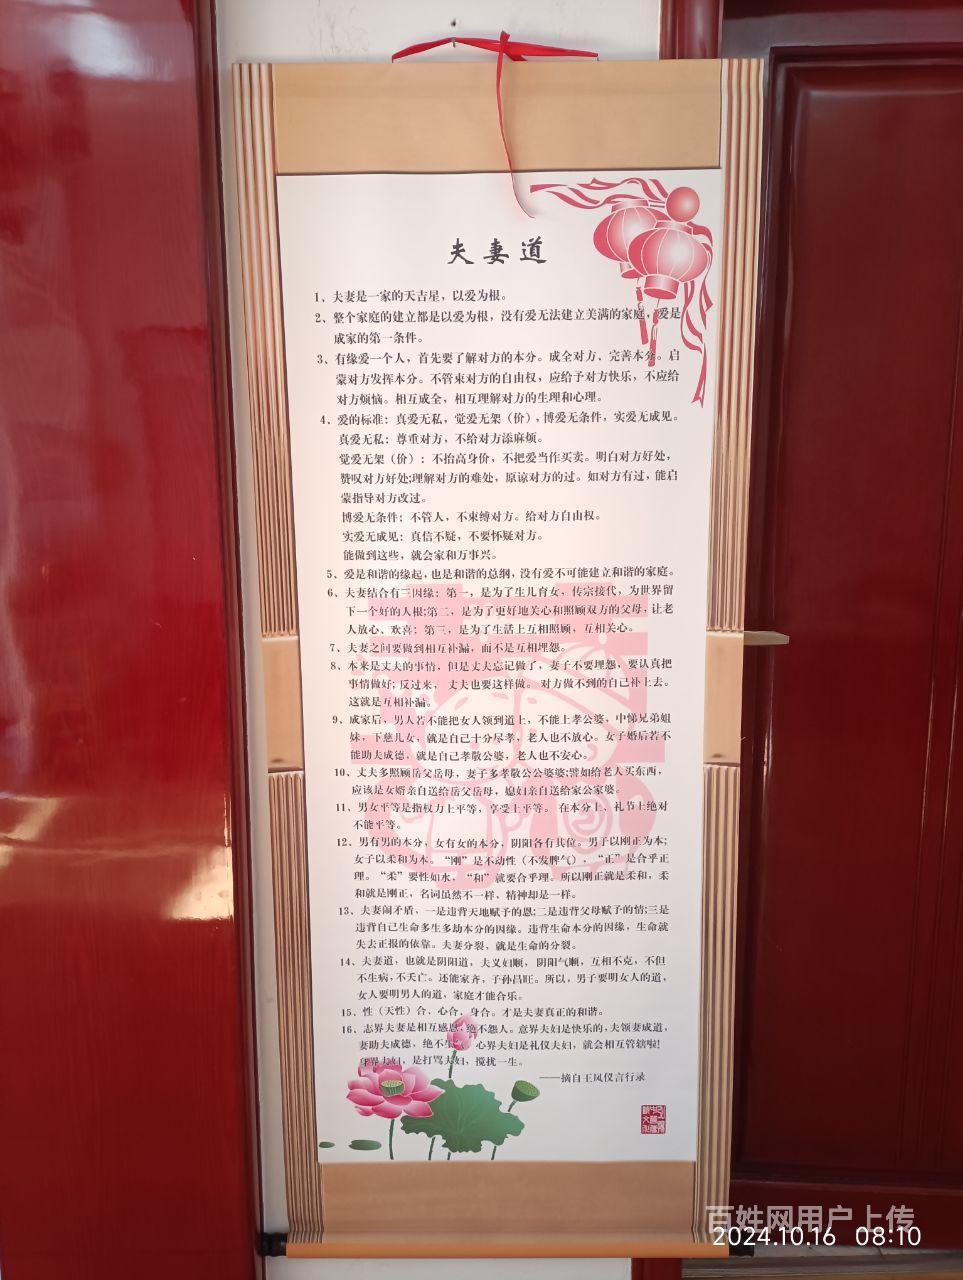 夫妻道
1、夫妻是一家的天吉星，以爱为根。
2、整个家庭的建立都是以爱为根，没有爱无法建立美满的家庭，爱是
成家的第一条件。
3、有缘爱一个人，首先要了解对方的本分。成全对方、完善本分。启
蒙对方发挥本分。不管束对方的自由权，应给予对方快乐，不应给
对方烦恼。相互成全，相互理解对方的生理和心理。
4、爱的标准：真爱无私，觉爱无架（价），博爱无条件，实爱无成见。
真爱无私：尊重对方，不给对方添麻烦。
觉爱无架（价）：不抬高身价，不把爱当作买卖。明白对方好处，
赞叹对方好处;理解对方的难处，原谅对方的过。如对方有过，能启
蒙指导对方改过。
博爱无条件：不管人，不束缚对方。给对方自由权。
实爱无成见：真信不疑，不要怀疑对方。
能做到这些，就会家和万事兴。
5、爱是和谐的缘起，也是和谐的总纲，没有爱不可能建立和谐的家庭。
6、夫妻结合有三因缘：第一，是为了生儿育女，传宗接代，为世界留
下一个好的人根;第二，是为了更好地关心和照顾双方的父母，让老
人放心、欢喜；第三，是为了生活上互相照顾，互相关心。
7、夫妻之间要做到相互补漏，而不是互相埋怨。
8、本来是丈夫的事情，但是丈夫忘记做了，妻子不要埋怨，要认真把
事情做好;反过来，丈夫也要这样做。对方做不到的自己补上去。
这就是互相补漏。
9、成家后，男人若不能把女人领到道上，不能上孝公婆，中悌兄弟姐
妹，下慈儿女，就是自己十分尽孝，老人也不放心。女子婚后若不
能助夫成德，就是自己孝敬公婆，老人也不安心。
10、丈夫多照顾岳父岳母，妻子多孝敬公公婆婆;譬如给老人买东西，
应该是女婿亲自送给岳父岳母，媳妇亲自送给家公家婆。
11、男女平等是指权力上平等，享受上平等。在本分上、礼节上绝对
不能平等。
12、男有男的本分，女有女的本分，阴阳各有其位。男子以刚正为本;
女子以柔和为本。“刚”是不动性（不发脾气），“正”是合乎正
理。“柔”要性如水，“和”就要合乎理。所以刚正就是柔和，柔
和就是刚正，名词虽然不一样，精神却是一样。
13、夫妻闹矛盾，一是违背天地赋予的恩;二是违背父母赋予的情;三是
违背自己生命多生多劫本分的因缘。违背生命本分的因缘，生命就
失去正报的依靠。夫妻分裂，就是生命的分裂。
14、夫妻道，也就是阴阳道，夫义妇顺，阴阳气顺，互相不克，不但
不生病，不夭亡。还能家齐，子孙昌旺。所以，男子要明女人的道，
女人要明男人的道，家庭才能合乐。
15、性（天性）合、心合、身合。才是夫妻真正的和谐。
16、志界夫妻是相互感恩，绝不怨人。意界夫妇是快乐的，夫领妻成道，
妻助夫成德，绝不生气。心界夫妇是礼仪夫妇，就会相互管辖啦！
身界夫妇，是打骂夫妇，搅扰一生。
——摘自王凤仪言行录
百姓网用户上传
2024.10.16 08:10